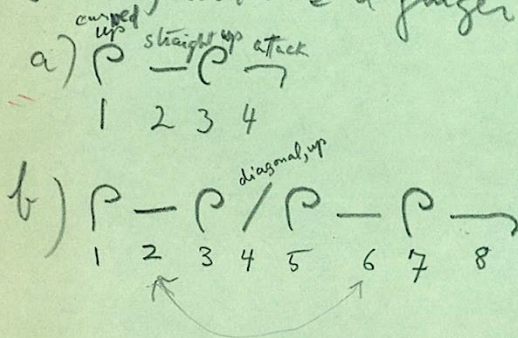 a ginger
curved up straight up attack
a)
1 2 3 4
diagonal, up
b)
1 2 3 4 5 6 7 8